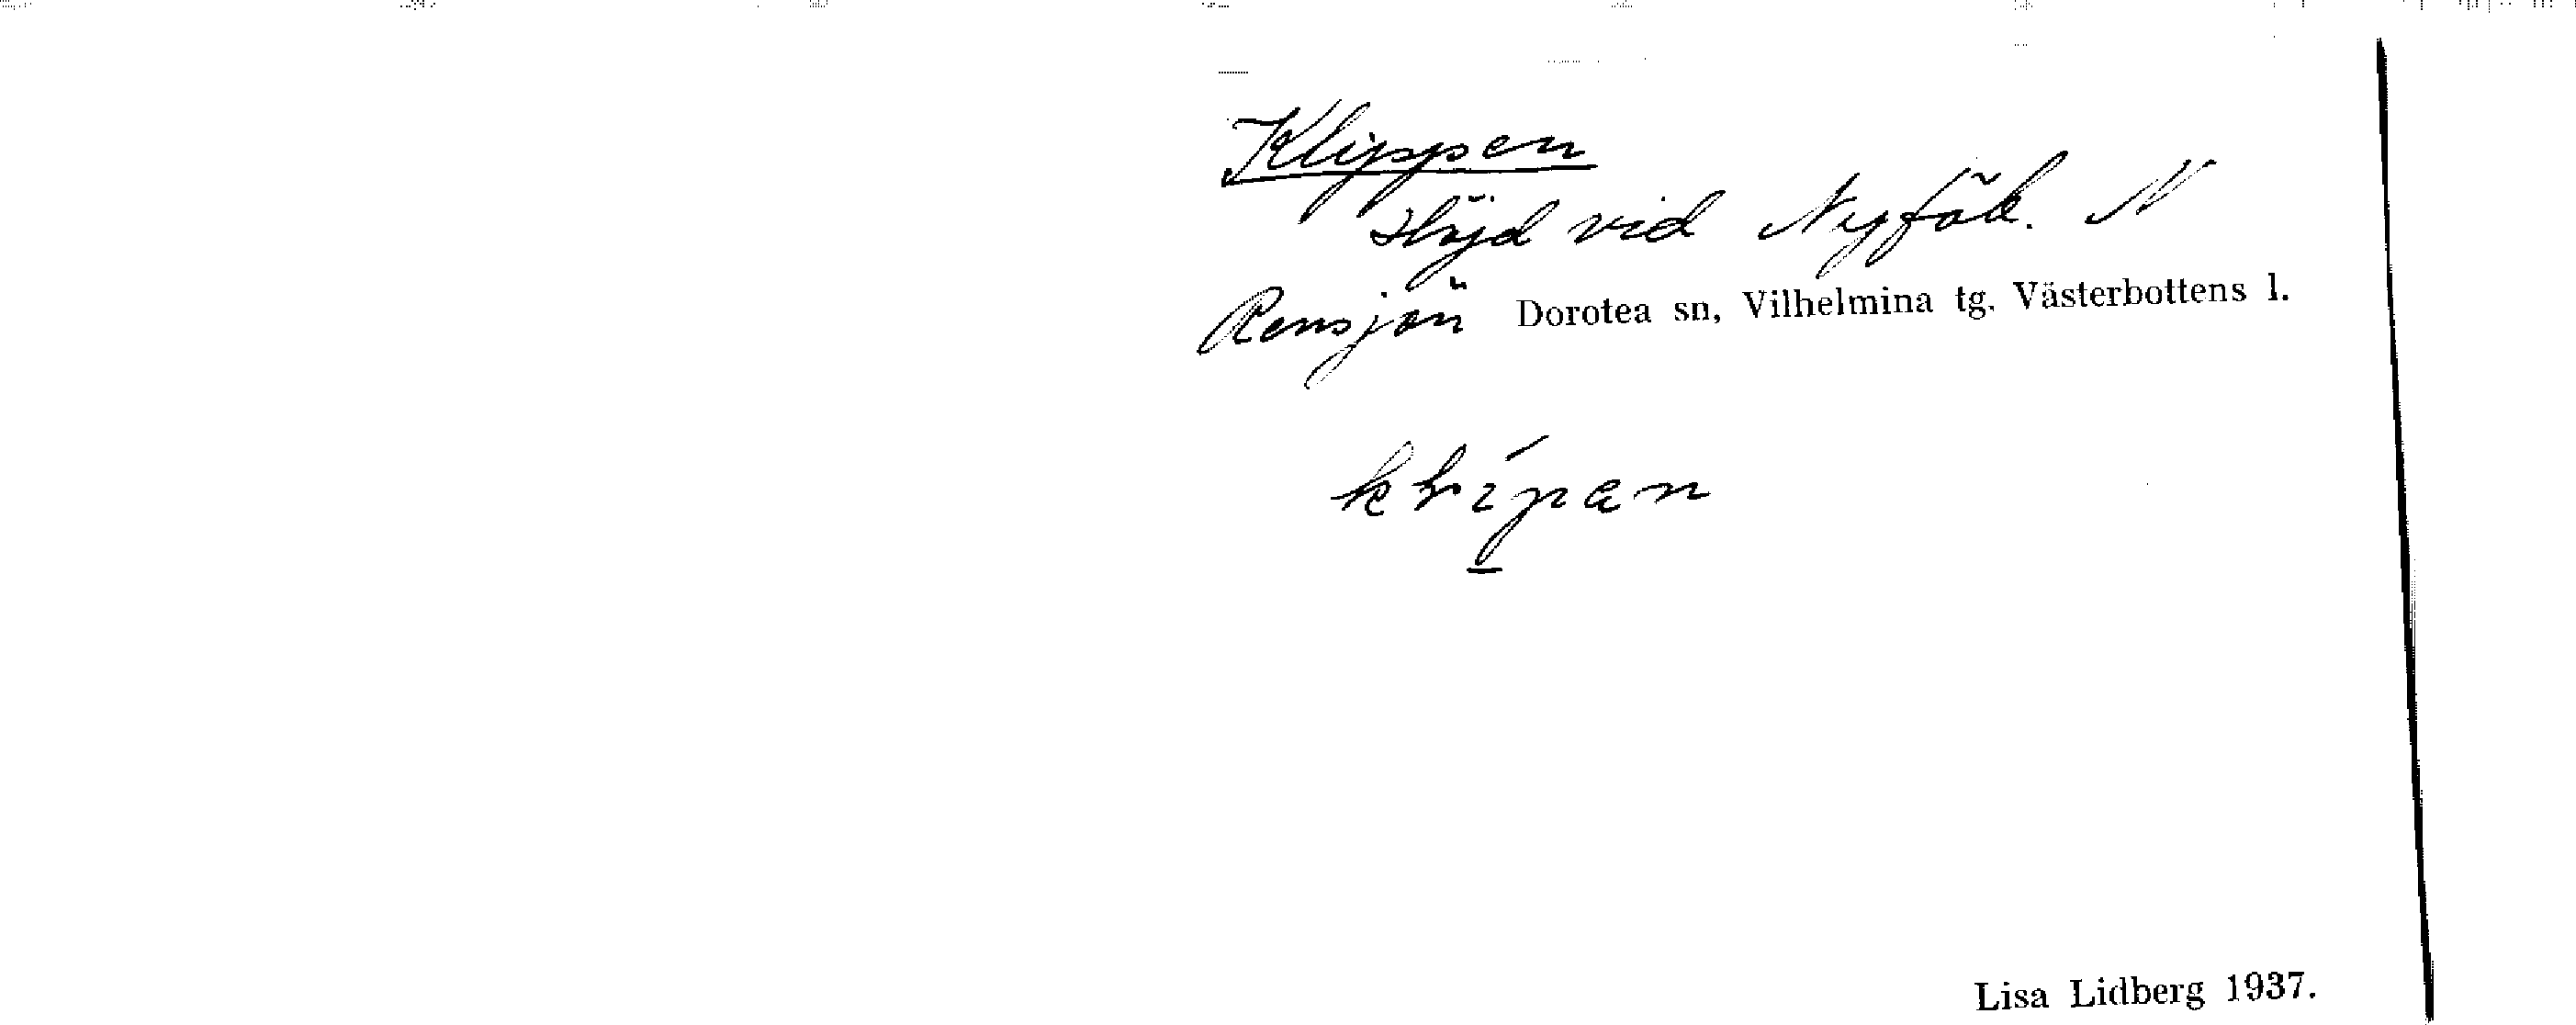 Klippen
Höjd vid Nyfäb. N
Rensjön Dorotea sn, Vilhelmina tg. Västerbottens l.
Lisa Lidberg 1937.